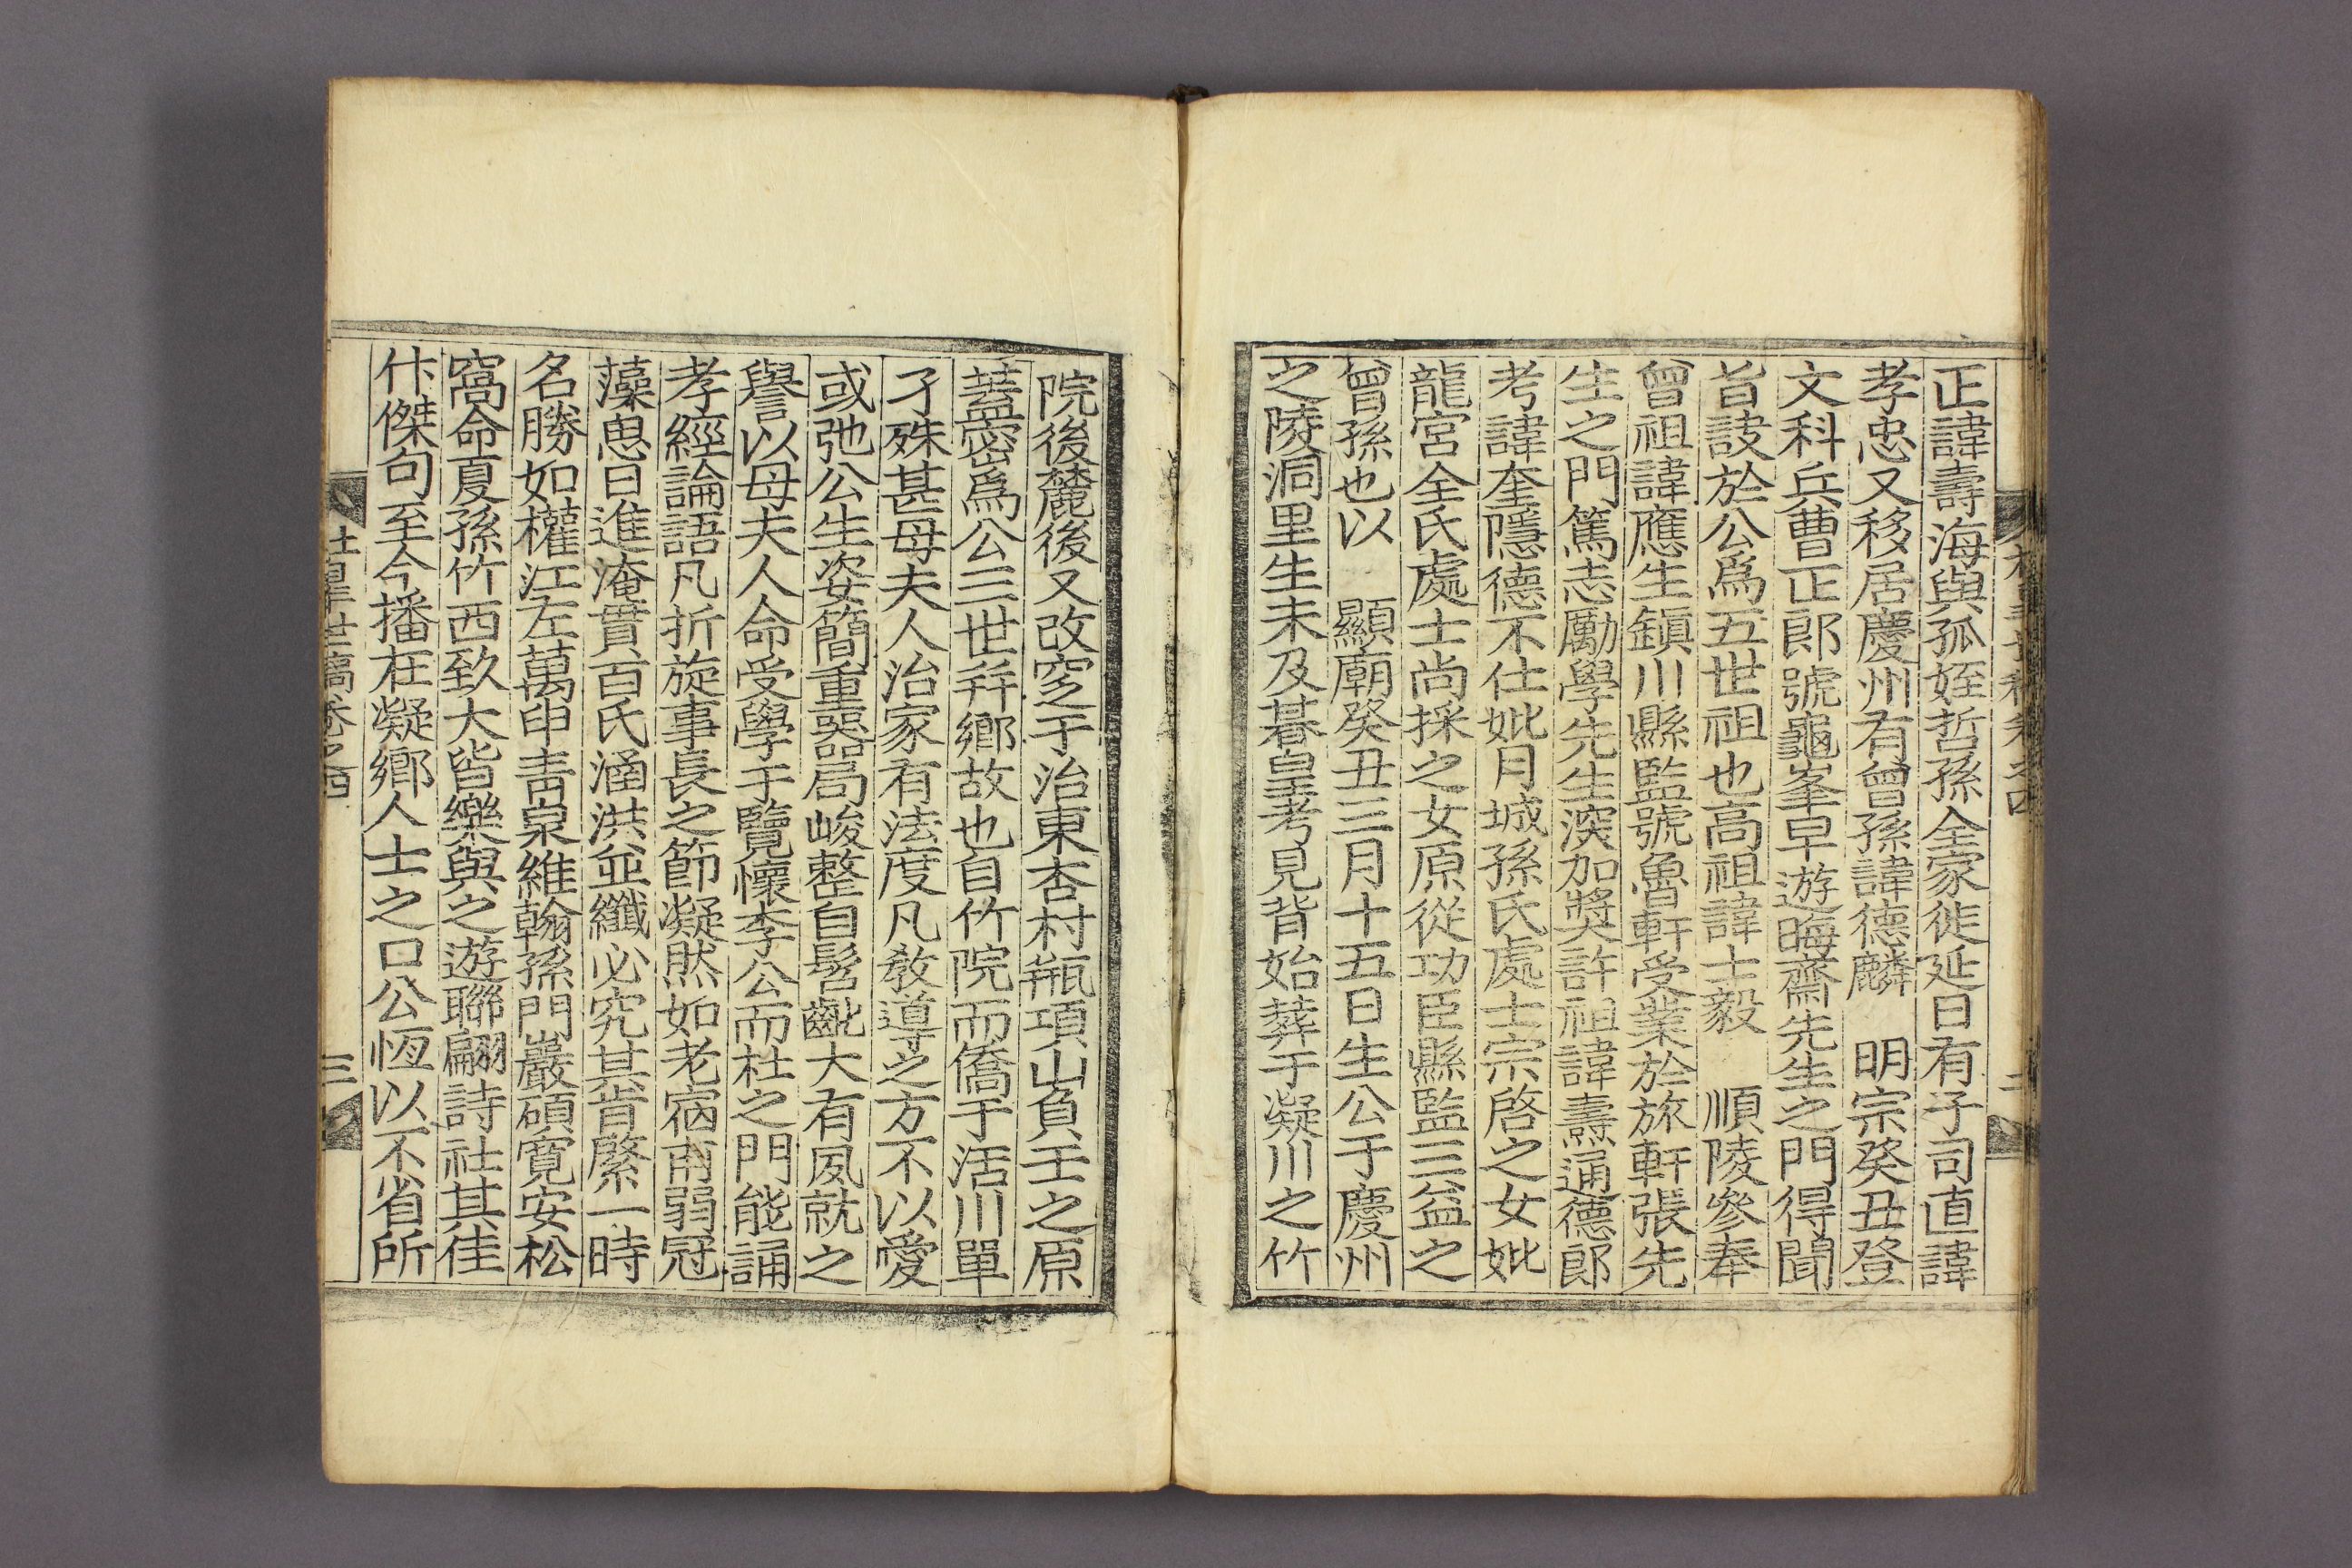 正諱壽海與孤姪哲孫全家徙延日有子司直諱
孝忠又移居慶州有曾孫諱德麟　明宗癸丑登
文科兵曹正郎號龜峯早遊晦齋先生之門得聞
旨訣於公爲五世祖也高祖諱士毅　順陵參奉
曾祖諱應生鎭川縣監號魯軒受業於旅軒張先
生之門篤志勵學先生深加奬許祖諱壽通德郎
考諱奎隱德不仕妣月城孫氏處士宗啓之女妣
龍宮全氏處士尚採之女原從功臣縣監三益之
曾孫也以　顯廟癸丑三月十五日生公于慶州
之陵洞里生未及朞皇考見背始葬于凝川之竹
院後麓後又改窆于治東杏村甁項山負壬之原
蓋密爲公三世幷鄕故也自竹院而僑于活川單
孑殊甚母夫人治家有法度凡敎導之方不以愛
或弛公生姿簡重器局峻整自髫齔大有夙就之
譽以母夫人命受學于覽懷李公而杜之門能誦
孝經論語凡折旋事長之節凝然如老宿甫弱冠
藻思日進淹貫百氏涵洪並纖必究其肯綮一時
名勝如權江左萬申靑泉維翰孫門巖碩寬安松
窩命夏孫竹西致大皆樂與之遊聯翩詩社其佳
什傑句至今播在凝鄕人士之口公恆以不省所
世稿卷之四
三